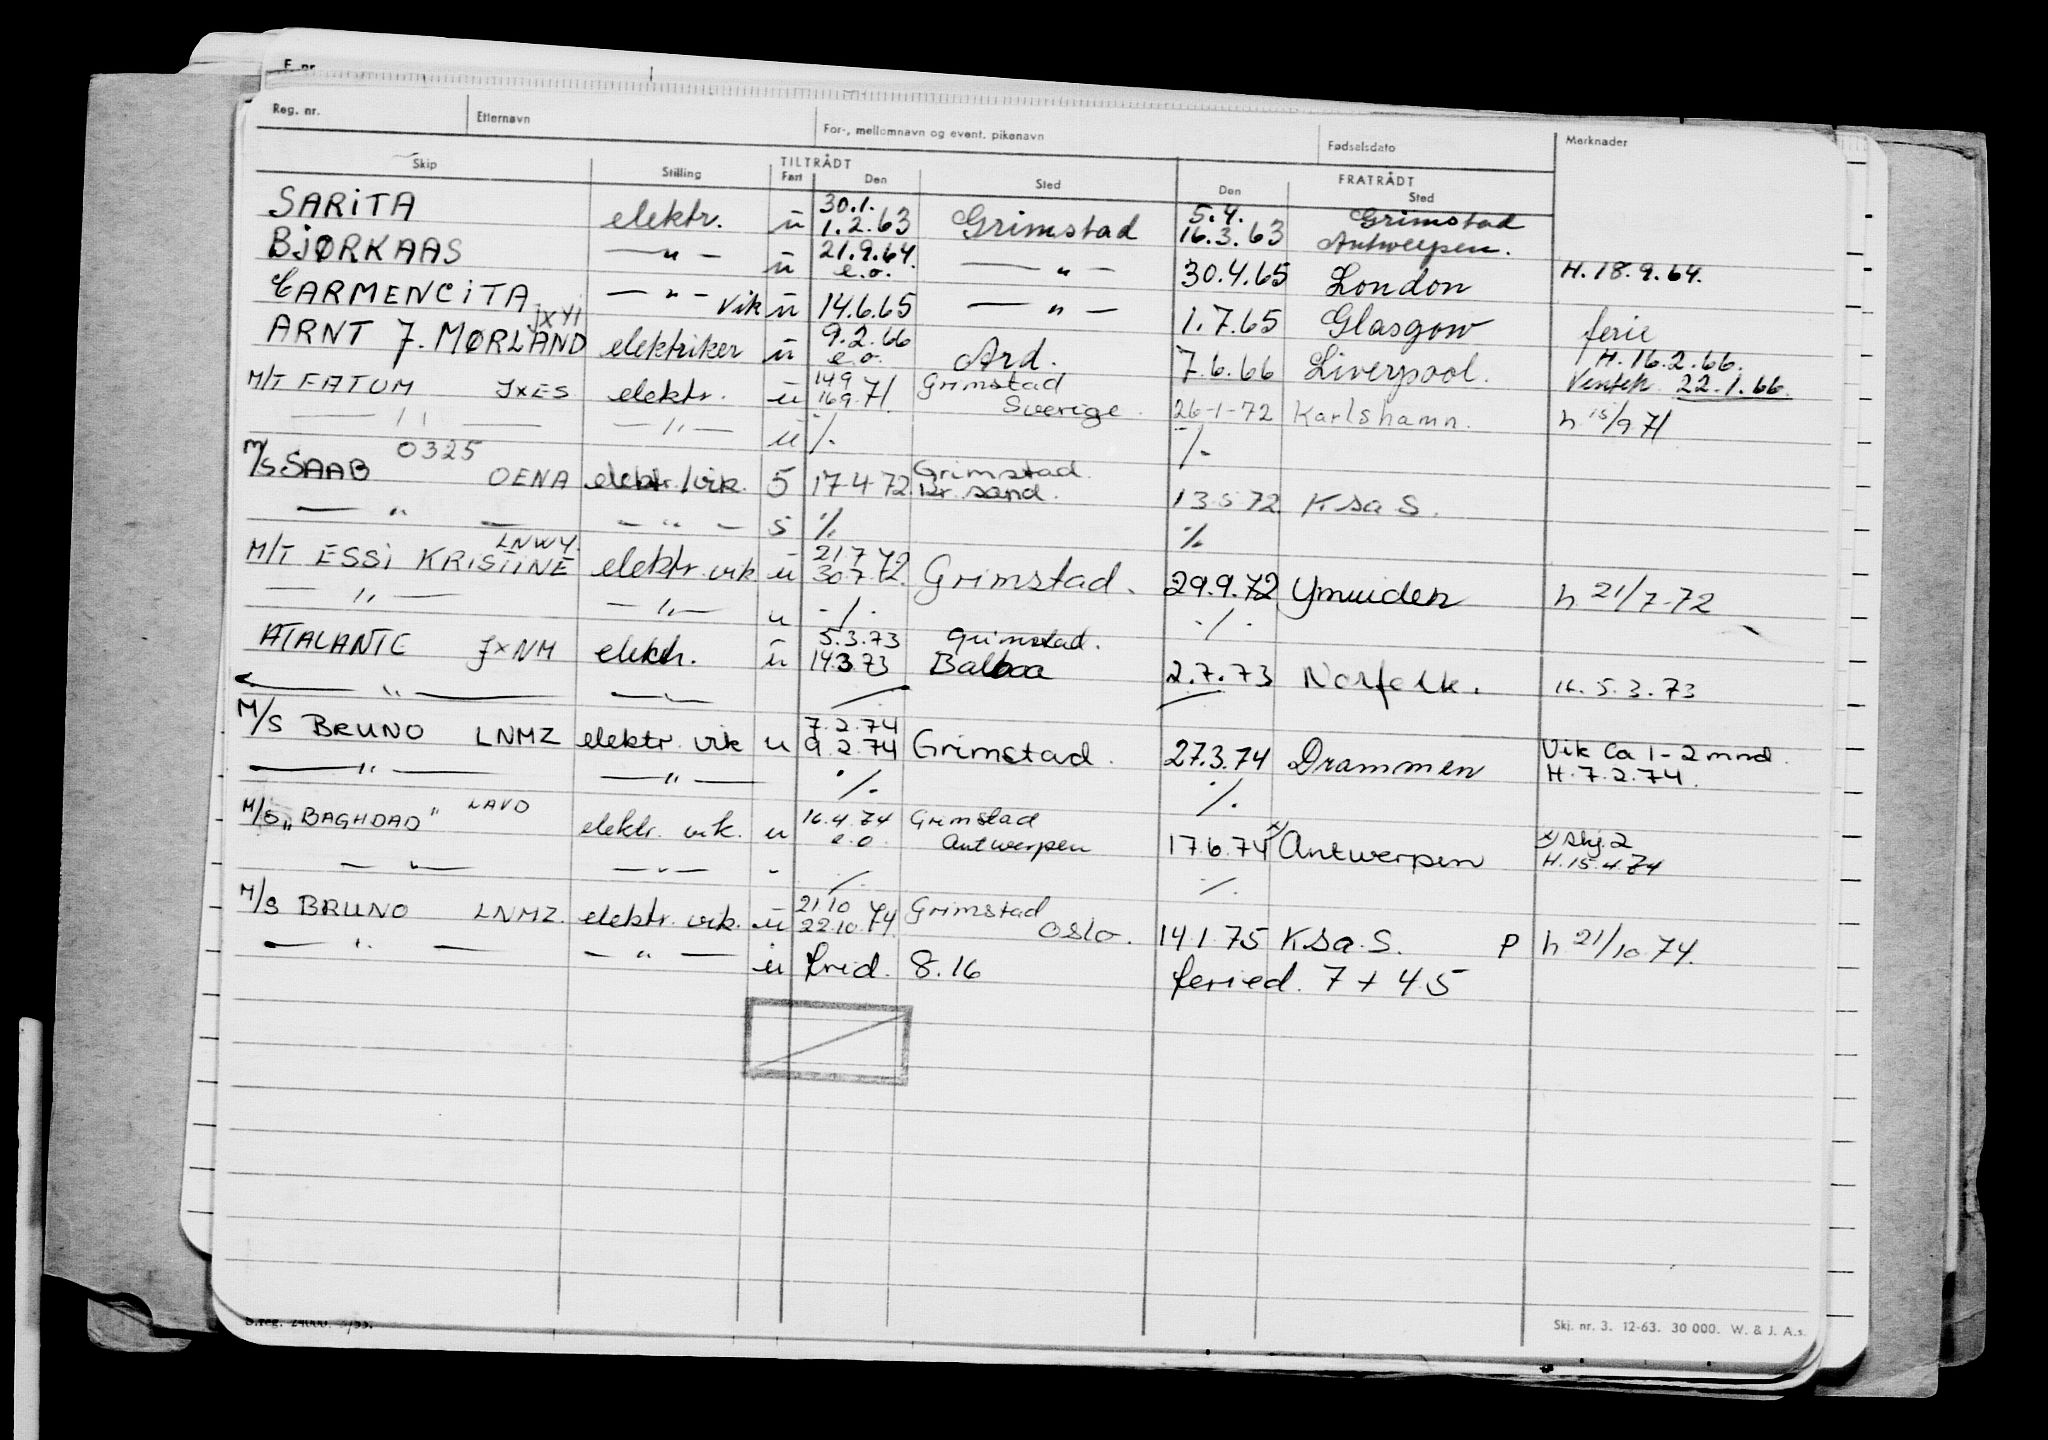 F. nr.
Reg. nr. Etternavn For-, mellomnavn og event. pikenavn Fødselsdato Merknader
Skip Stilling TILTRÅDT FRATRÅDT
Fart Den Sted Den Sted
30.1. 5.4. Grimstad
SARITA elektr. u 1.2.63 Grimstad 16.3.63 Antwerpen.
BJØRKAAS — " — u 21.9.64. e.o. — " — 30.4.65 London H. 18.9.64.
CARMENCITA — " — vik u 14.6.65 — " — 1.7.65 Glasgow ferie
JXYI 9.2.66 H. 16.2.66.
ARNT J. MØRLAND elektriker u e.o. Ard. 7.6.66 Liverpool. 22.1.66.
14 9 Grimstad
M/T FATUM JXES elektr. u 16 9.71. Sverige. 26-1-72 Karlshamn. h 15/9 71
— " — — " — u %. %.
0325 Grimstad.
M/S SAAB OENA elektr./vik. 5 17-4-72. Kr. sand. 13.5.72 K sa S.
— " — — " — 5 %. %.
LNWY. 21 7 72
M/T ESSI KRISTINE elektr. vik u 30.7.72. Grimstad. 29.9.72 Ymuiden h 21/7-72
— " — — " — u -/. -/.
5.3.73 Grimstad.
ATALANTE JXNM elektr. u 14.3.73 Balboa 2.7.73 Norfolk. H. 5.3.73
— " — — " —
7.2.74
M/S BRUNO LNMZ elektr. vik u 9.2.74 Grimstad. 27.3.74 Drammen Vik Ca 1-2 mnd.
H. 7.2.74.
— " — — " — %. %.
M/S "BAGHDAD" LAVD elektr. vik. u 16.4.74 Grimstad x) skj. 2
e.o. Antwerpen 17.6.74 x) Antwerpen H. 15.4.74
— " — — " — " %. %.
21 10 74 Grimstad
M/S BRUNO LNMZ. elektr. vik. u 22.10.74. Oslo. 14.1.75 K sa. S. P h 21/10 74.
— " — — " — u frid. 8.16 feried. 7 + 45
S.reg. 24000. 5/55. Skj. nr. 3. 12-63. 30 000. W. & J. A.s.